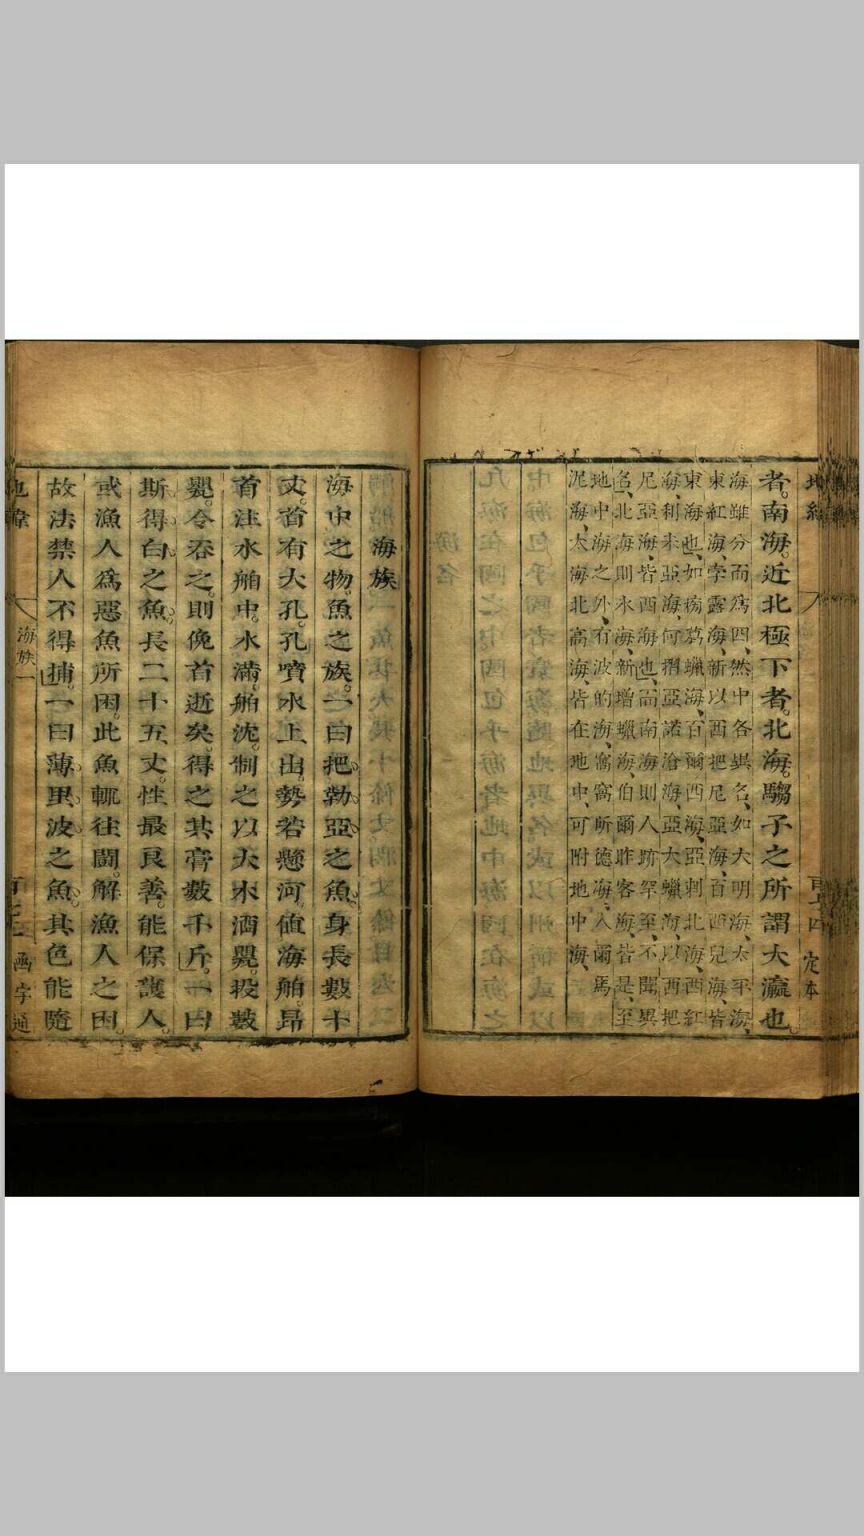 者。南海。近北極下者。北海。騶子之所謂大瀛也
海雖分而爲四、然中各異名、如大明海、太平海、
東紅海、孛露海、新以西把尼亞海、百西兒海、皆
東海也、如榜葛蠟海、百爾西海、亞剌北海、西紅
海、利未亞海、何摺亞諾滄海、亞大蠟海、以西把
尼亞海、皆西海也、而南海則人跡罕至、不聞異
名、北海則氷海、新增蠟海、伯爾昨客海、皆是、至
地中海之外、有波的海、窩窩所德海、入爾馬
泥海、太海、北高海、皆在地中、可附地中海、
海族
海中之物。魚之族。一曰把勒亞之魚。身長數十
丈。首有大孔。孔噴水上出。勢若懸河。値海舶。昂
首注水舶中。水滿。舶沈。制之以大木酒甖。投數
甖。令吞之。則俛首逝矣。得之其膏數千斤。一曰
斯得白之魚。長二十五丈。性最良善。能保護人。
或漁人爲惡魚所困。此魚輒往鬬。解漁人之困。
故法禁人不得捕。一曰薄里波之魚。其色能隨
海族一